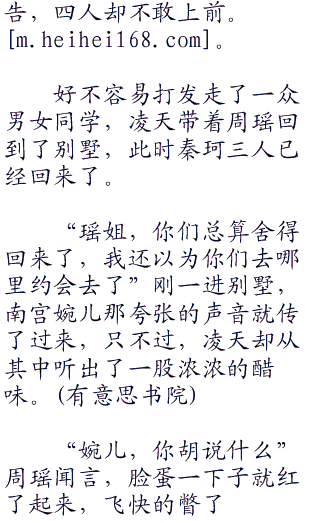 告，四人却不敢上前。
[m.heihei168.com]。
好不容易打发走了一众
男女同学，凌天带着周瑶回
到了别墅，此时秦珂三人已
经回来了。
“瑶姐，你们总算舍得
回来了，我还以为你们去哪
里约会去了”刚一进别墅，
南宫婉儿那夸张的声音就传
了过来，只不过，凌天却从
其中听出了一股浓浓的醋
味。(有意思书院)
“婉儿，你胡说什么”
周瑶闻言，脸蛋一下子就红
了起来，飞快的瞥了